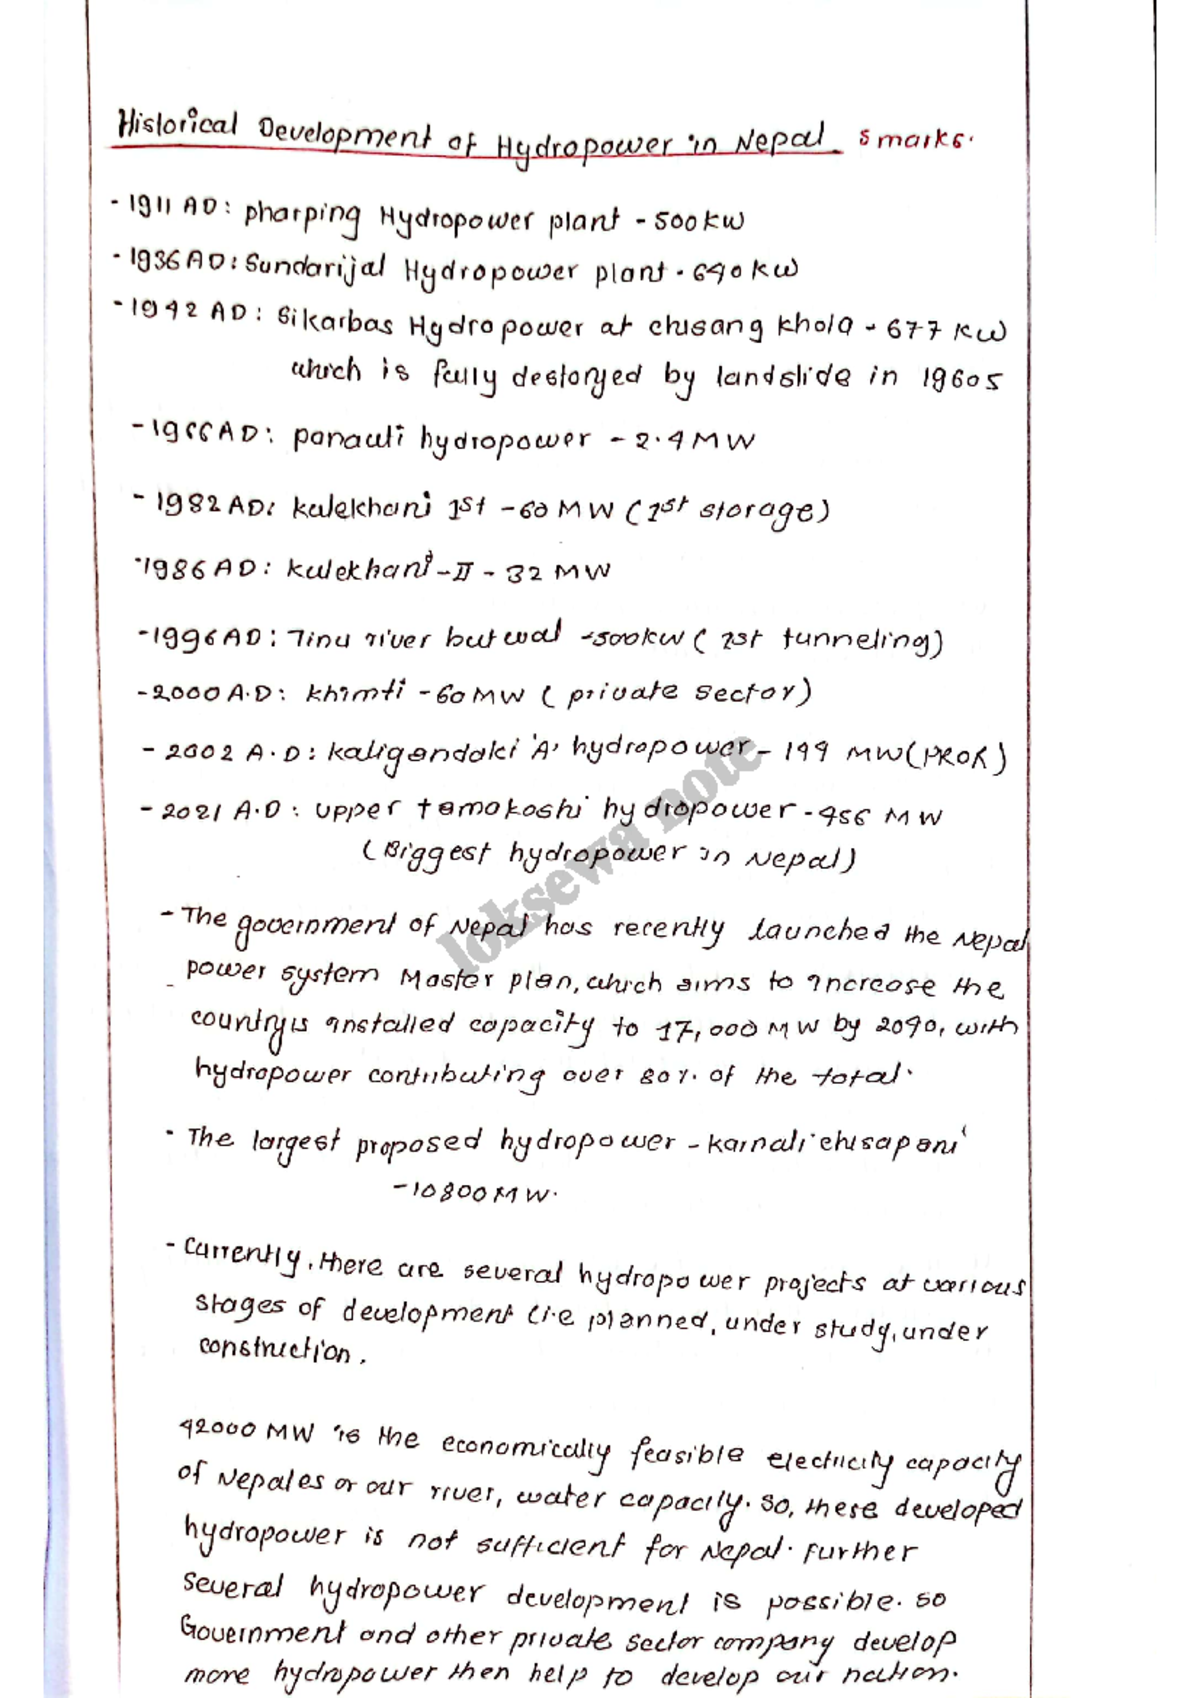 Historical Development of Hydropower in Nepal 5 marks.
- 1911 AD: pharping Hydropower plant - 500 kW
- 1936 AD: Sundarijal Hydropower plant - 640 kW
- 1942 AD: Sikarbas Hydropower at chisang khola - 677 kW
which is fully destoryed by landslide in 1960s
- 1966 AD: panauti hydropower - 2.4 MW
- 1982 AD: kulekhani 1st - 60 MW (1st storage)
- 1986 AD: kulekhani - II - 32 MW
- 1996 AD: Tinu river butwal - 500kW (1st tunneling)
- 2000 A.D: khimti - 60 MW (private sector)
- 2002 A.D: kaligandaki 'A' hydropower - 144 MW (PROR)
- 2021 A.D: upper tamakoshi hydropower - 456 MW
(Biggest hydropower in Nepal)
- The government of Nepal has recently launched the Nepal
power system Master plan, which aims to increase the
country's installed capacity to 17,000 MW by 2040, with
hydropower contributing over 80%. of the total.
- The largest proposed hydropower - karnali chisapani
- 10800 MW.
- Currently, there are several hydropower projects at various
stages of development (i.e planned, under study, under
construction.
42000 MW is the economically feasible electricity capacity
of Nepales or our river, water capacity. So, these developed
hydropower is not sufficient for Nepal. Further
several hydropower development is possible. so
Government and other private sector company develop
more hydropower then help to develop our nation.
loksewa note